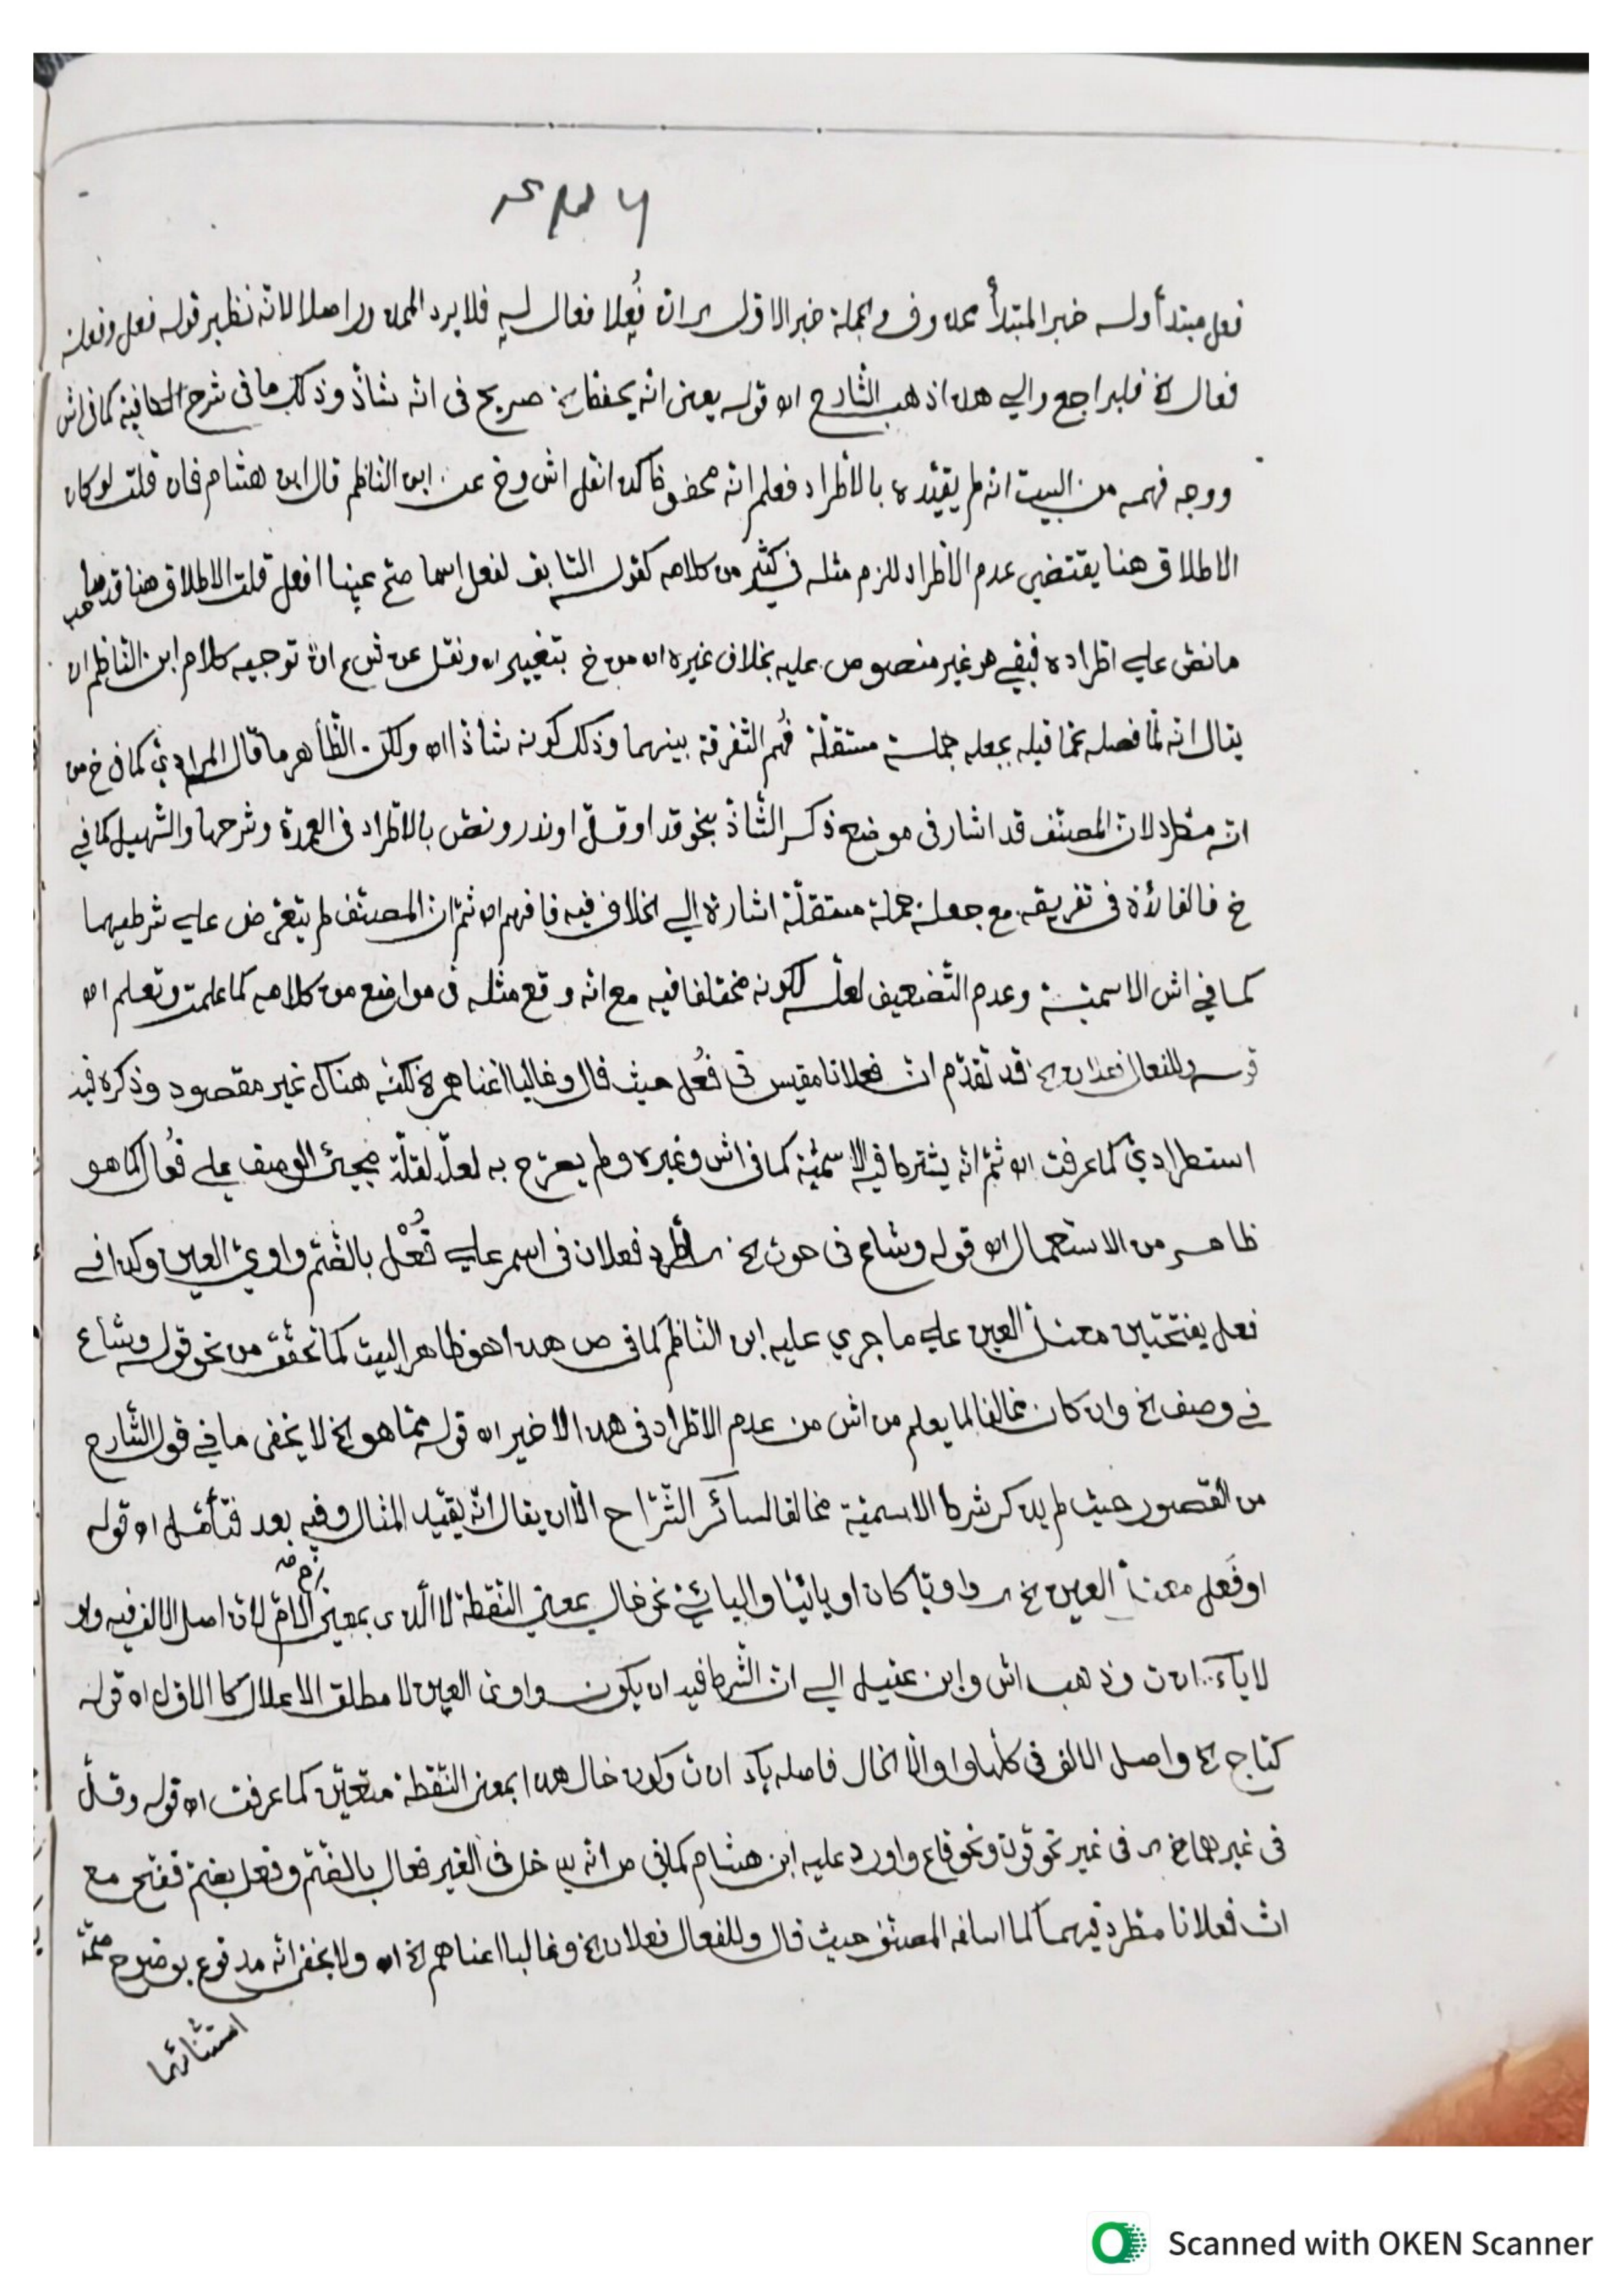 فعل مبتدأ وله خبر المبتدأ محذوف والجملة خبر الاول اى ان فُعِلا فعال له فلا يرد المحذور اصلا لانه نظير قوله فعل وفعلة
فعال الخ فليراجع والى هذا ذهب الشارح اه قوله يعنى انه يحفظ الخ صريح فى انه شاذ وذلك ما فى شرح الكافية كما فى اش
ووجه فهمه من البيت انه لم يقيّده بالاطراد فعلم انه محفوظ كذا نقل اش وخ عن ابن الناظم قال ابن هشام فان قلت لو كان
الاطلاق هنا يقتضى عدم الاطراد للزم مثله فى كثير من كلامه كقوله السابق لفعل اسما صح عينا افعل قلت الاطلاق هنا قد
ما نصّ على اطراده فبقي هو غير منصوص عليه بخلاف غيره اه من خ بتغيير اه ونقل عن ان توجيه كلام ابن الناظم ان
يقال انه لمّا فصله عمّا قبله بجعله جملة مستقلّة فُهم التفرقة بينهما وذلك كونه شاذا اه ولكن الظّاهر ما قال المرادي كما فى خ من
انه مطرد لان المصنّف قد اشار فى موضع ذكر الشّاذ بنحو قد او قلّ او ندر ونصّ بالاطراد فى العمدة وشرحها والتسهيل كما في
خ فالفائدة فى تفريقه مع جعله جملة مستقلّة اشارة الى الخلاف فيه فافهم اه ثمّ ان المصنّف لم يتعرّض على شرطيهما
كما في اش الاسميّة وعدم التّضعيف لعلّه لكونه مختلفا فيه مع انه وقع مثله فى مواضع من كلامه كما علمت وتعلم اه
قوله وللفعال فعلان الخ قد تقدّم ان فعلانا مقيس فى فُعَل حيث قال وغالبا اغناهم الخ لكنه هناك غير مقصود وذكره فيه
استطرادي كما عرفت اه ثمّ انه يشترط فيه الاسميّة كما فى اش وغيره ولم يصرّح به لعلّه لقلّة مجيئ الوصف على فُعال كما هو
ظاهر من الاستعمال اه قوله وشاع فى حوت الخ اى اطّرد فعلان فى اسم على فُعْل بالضّم واويّ العين وكذا في
فعل بفتحتين معتلّ العين على ما جرى عليه ابن الناظم كما فى ص هذا هو ظاهر البيت كما تحقّق من نحو قوله وشاع
في وصف الخ وان كان مخالفا لما يعلم من اش من عدم الاطراد فى هذا الاخير اه قوله ممّا هو الخ لا يخفى ما في قول الشّارح
من القصور حيث لم يذكر شرط الاسميّة مخالفا لسائر الشّرّاح الّا ان يقال انّه يقيّد المثال وفيه بعد فتأمّل اه قوله
او فَعل معتلّ العين الخ اى واويّا كان او يائيّا واليائي نحو خال بمعنى النّقطة لا الذى بمعنى اخ الامّ لان اصل الالف فيه واو
لا ياء اه ن وذهب اش وابن عقيل الى ان الشّرط فيه ان يكون واوى العين لا مطلق الاعلال كالاوّل اه قوله
كتاج الخ واصل الالف فى كلّها واو الّا الخال فاصله ياء اه ن وكون خال هذا بمعنى النّقطة متعيّن كما عرفت اه قوله وقلّ
فى غيرهما الخ اى فى غير نحو قوت ونحو قاع واورد عليه ابن هشام كما في ص انه يدخل فى الغير فعال بالضّم وفعل بضمّ ففتح مع
ان فعلانا مطّرد فيهما كما اسلفه المصنّف حيث قال وللفعال فعلان الخ وغالبا اغناهم الخ اه ولا يخفى انّه مدفوع بوضوح صحّة
استثنائهما